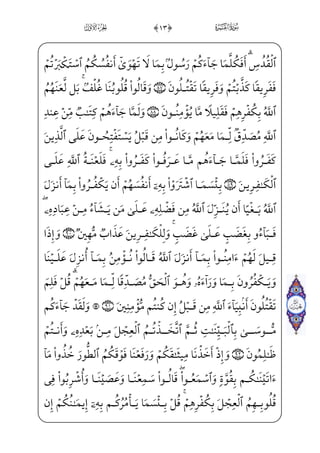 الجزء الأول ﴿١٣﴾ سورة البقرة
ٱلْقُدُسِ ۗ أَفَكُلَّمَا جَآءَكُمْ رَسُولٌۢ بِمَا لَا تَهْوَىٰٓ أَنفُسُكُمُ ٱسْتَكْبَرْتُمْ
فَفَرِيقًا كَذَّبْتُمْ وَفَرِيقًا تَقْتُلُونَ ۝٨٧ وَقَالُوا۟ قُلُوبُنَا غُلْفٌۢ ۚ بَل لَّعَنَهُمُ
ٱللَّهُ بِكُفْرِهِمْ فَقَلِيلًا مَّا يُؤْمِنُونَ ۝٨٨ وَلَمَّا جَآءَهُمْ كِتَـٰبٌ مِّنْ عِندِ
ٱللَّهِ مُصَدِّقٌ لِّمَا مَعَهُمْ وَكَانُوا۟ مِن قَبْلُ يَسْتَفْتِحُونَ عَلَى ٱلَّذِينَ
كَفَرُوا۟ فَلَمَّا جَآءَهُم مَّا عَرَفُوا۟ كَفَرُوا۟ بِهِۦ ۚ فَلَعْنَةُ ٱللَّهِ عَلَى
ٱلْكَـٰفِرِينَ ۝٨٩ بِئْسَمَا ٱشْتَرَوْا۟ بِهِۦٓ أَنفُسَهُمْ أَن يَكْفُرُوا۟ بِمَآ أَنزَلَ
ٱللَّهُ بَغْيًا أَن يُنَزِّلَ ٱللَّهُ مِن فَضْلِهِۦ عَلَىٰ مَن يَشَآءُ مِنْ عِبَادِهِۦ ۖ
فَبَآءُو بِغَضَبٍ عَلَىٰ غَضَبٍ ۚ وَلِلْكَـٰفِرِينَ عَذَابٌ مُّهِينٌ ۝٩٠ وَإِذَا
قِيلَ لَهُمْ ءَامِنُوا۟ بِمَآ أَنزَلَ ٱللَّهُ قَالُوا۟ نُؤْمِنُ بِمَآ أُنزِلَ عَلَيْنَا
وَيَكْفُرُونَ بِمَا وَرَآءَهُۥ وَهُوَ ٱلْحَقُّ مُصَدِّقًا لِّمَا مَعَهُمْ ۗ قُلْ فَلِمَ
تَقْتُلُونَ أَنۢبِيَآءَ ٱللَّهِ مِن قَبْلُ إِن كُنتُم مُّؤْمِنِينَ ۝٩١ ۞ وَلَقَدْ جَآءَكُم
مُّوسَىٰ بِٱلْبَيِّنَـٰتِ ثُمَّ ٱتَّخَذْتُمُ ٱلْعِجْلَ مِنۢ بَعْدِهِۦ وَأَنتُمْ
ظَـٰلِمُونَ ۝٩٢ وَإِذْ أَخَذْنَا مِيثَـٰقَكُمْ وَرَفَعْنَا فَوْقَكُمُ ٱلطُّورَ خُذُوا۟ مَآ
ءَاتَيْنَـٰكُم بِقُوَّةٍ وَٱسْمَعُوا۟ ۖ قَالُوا۟ سَمِعْنَا وَعَصَيْنَا وَأُشْرِبُوا۟ فِى
قُلُوبِهِمُ ٱلْعِجْلَ بِكُفْرِهِمْ ۚ قُلْ بِئْسَمَا يَأْمُرُكُم بِهِۦٓ إِيمَـٰنُكُمْ إِن